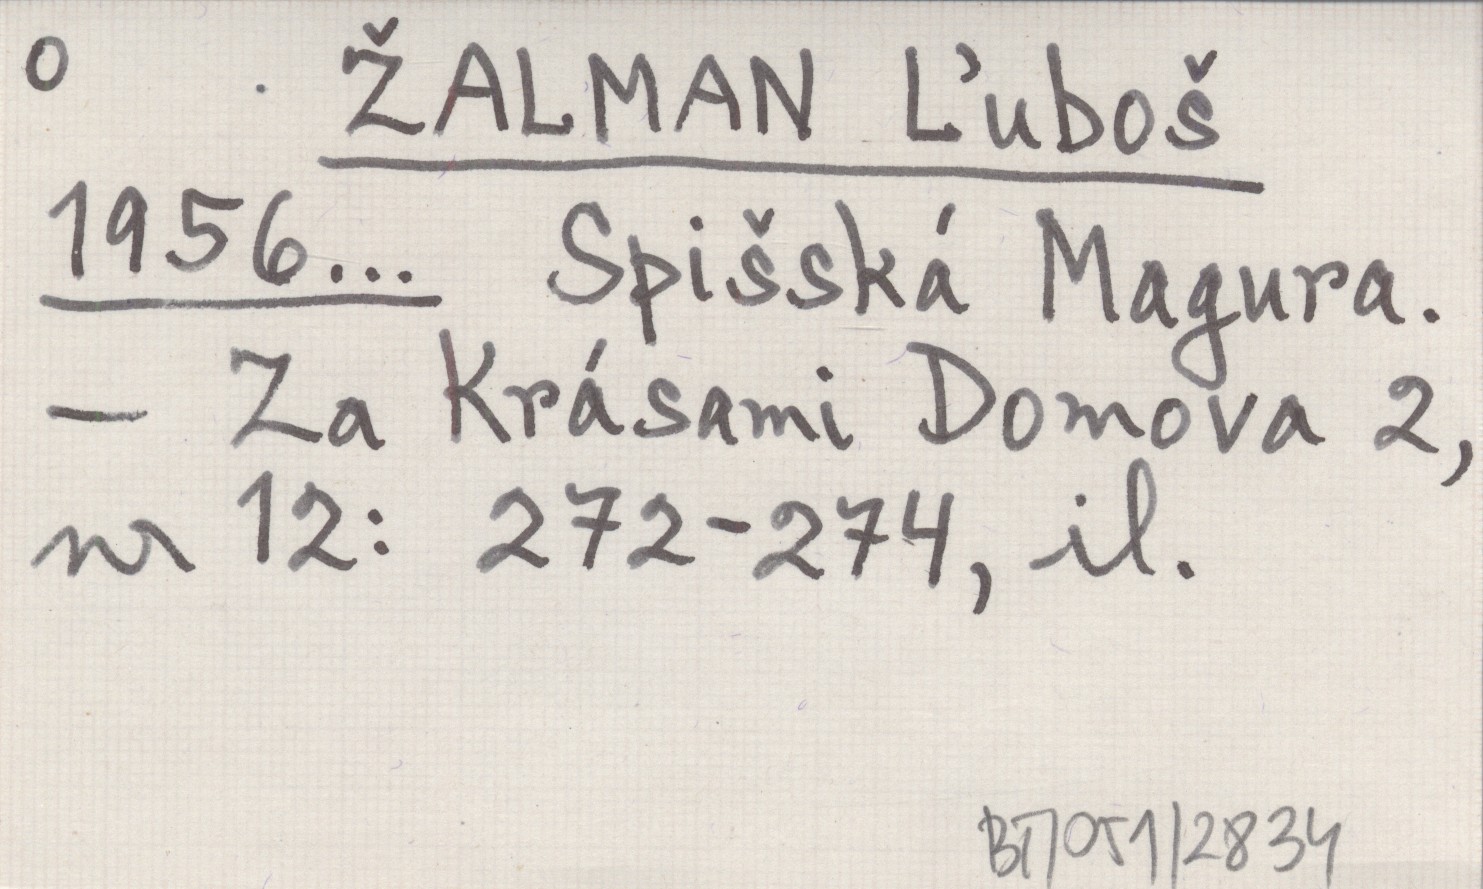 O ŽALMAN Ľuboš
1956... Spišská Magura.
— Za Krásami Domova 2,
nr 12: 272-274, il.
BT/051/2834